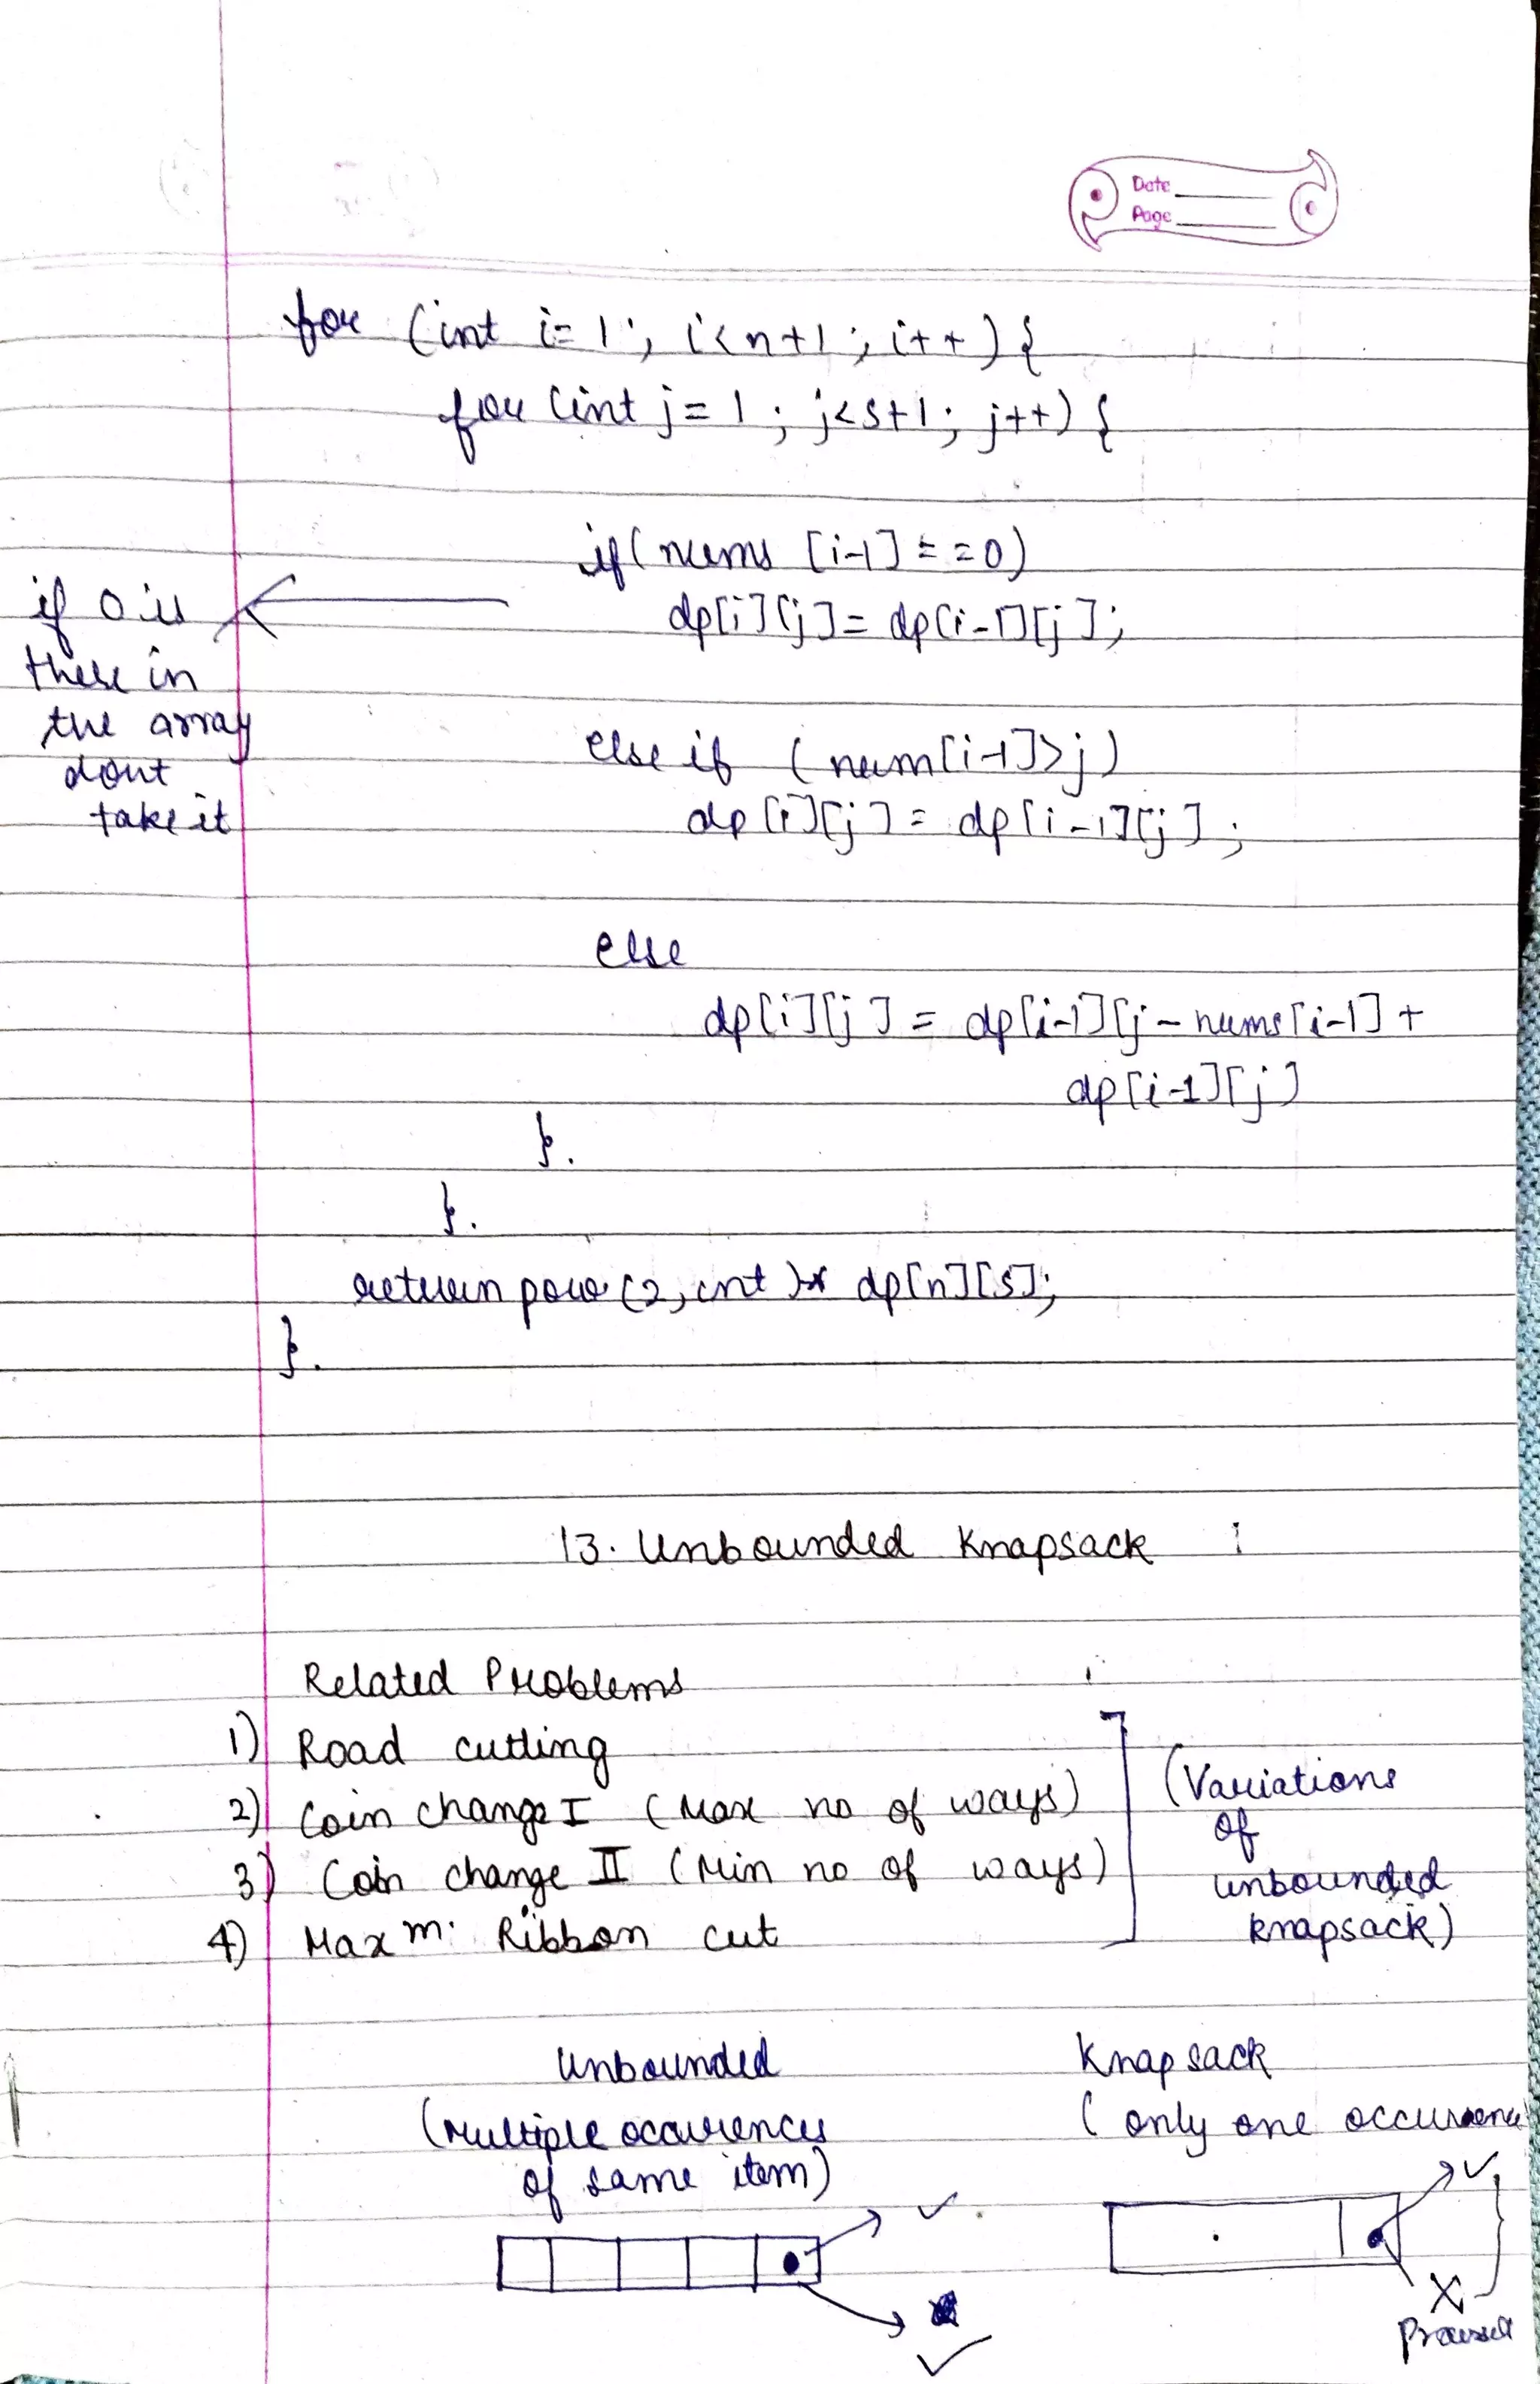 Date
Page
for (int i=1; i<n+1; i++){
for (int j=1; j<s+1; j++) {
if (nums [i-1] == 0)
dp[i][j] = dp[i-1][j];
if 0 is
there in
the array
dont
take it
else if (num[i-1]>j)
dp[i][j] = dp[i-1][j];
else
dp[i][j] = dp[i-1][j - nums[i-1] +
dp[i-1][j]
}.
}.
return pow(2,cnt)* dp[n][s];
}.
13. Unbounded Knapsack :
Related Problems
1) Road cutting
2) Coin change I (Max no of ways)
3) Coin change II (Min no of ways)
4) Max m. Ribbon cut
(Variations
of
unbounded
knapsack)
Unbounded
(Multiple occurences
of same item)
Knapsack
(only one
X